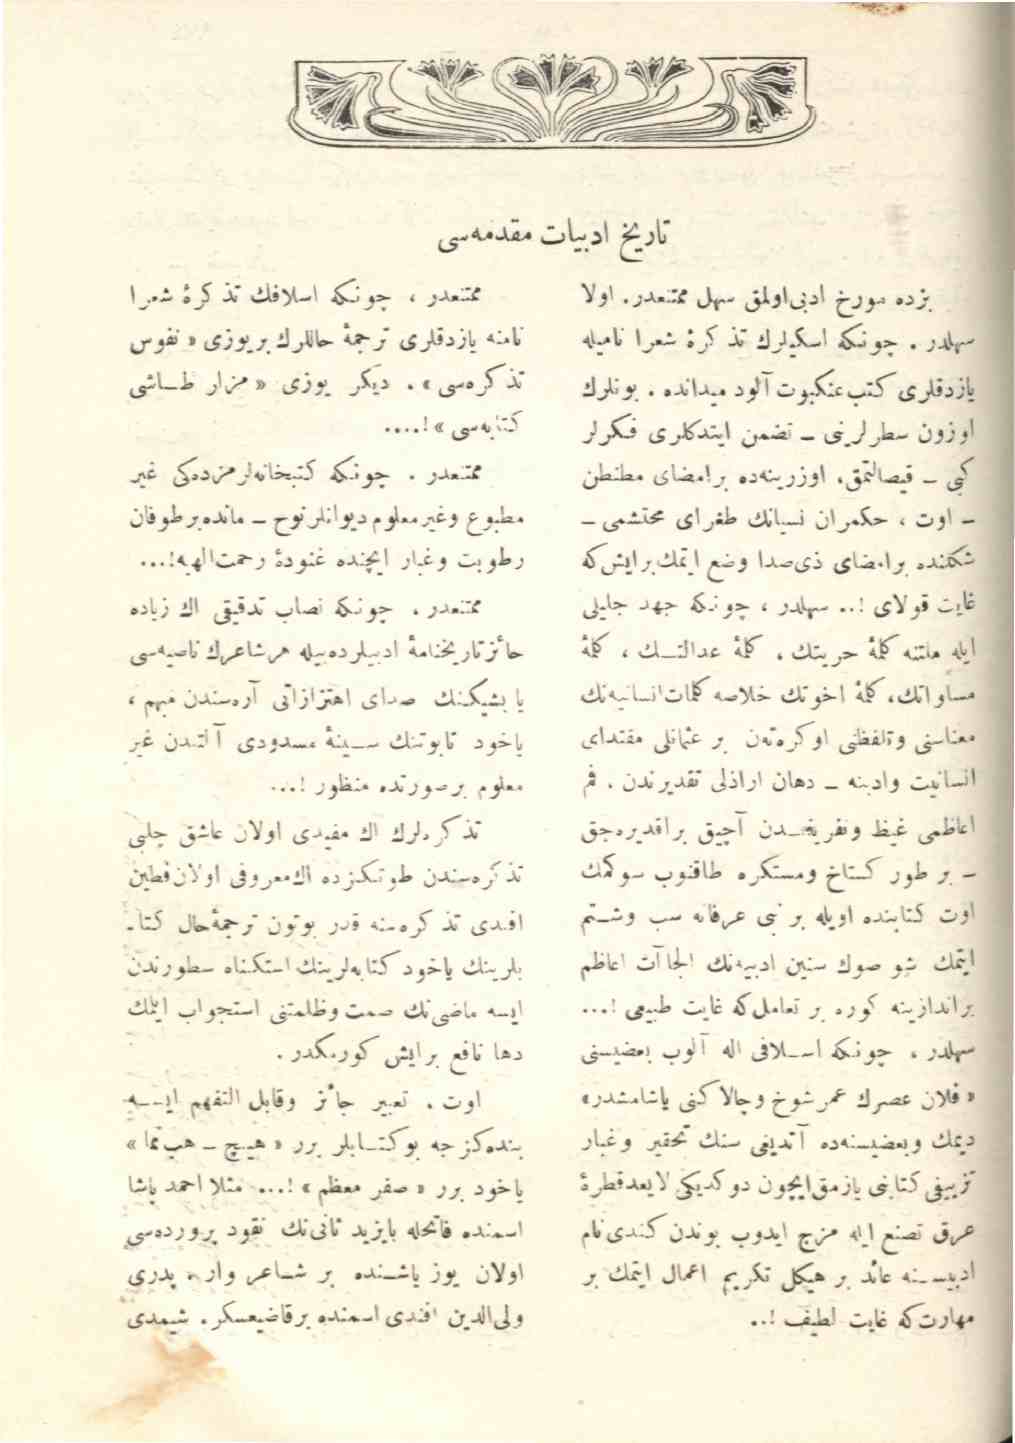 تاریخ ادبیات مقدمه‌سی
بزده مورخ ادبی اولمق سهل ممتنعدر. اولا
سهلدر . چونكه اسكیلرك تذكرهٔ شعرا نامیله
یازدقلری كتب عنكبوت آلود میدانده . بونلرك
اوزون سطرلرینی ـ تضمن ایتدكلری فكرلر
كبی ـ قیصالتمق، اوزرینه‌ده برامضای مطنطن
ـ اوت ، حكمران نسیانك طغرای محتشمی ـ
شكلنده برامضای ذی‌صدا وضع ایتمك برایش‌كه
غایت قولای !.. سهلدر ، چونكه جهد جلیلی
ایله ملتنه كلمهٔ حریتك ، كلمهٔ عدالتـك ، كلمهٔ
مساواتك، كلمهٔ اخوتك خلاصه كلمات انسانیه‌نك
معناسنی وتلفظنی اوكره‌تەن بر عثمانلی مقتدای
انسانیت وادبنه ـ دهان اراذلی تقدیرندن . فم
اعاظمی غیظ ونفریندن آچیق براقدیره‌جق
ـ بر طور كستاخ ومستكره طاقنوب سوكمك
اوت كتابنده اویله بر نبی عرفانه سب وشتم
ایتمك شو صوك سنین ادبیه‌نك الجاآت اعاظم
براندازینه كوره بر تعامل‌كه غایت طبیعی !...
سهلدر ، چونكه اسـلافی اله آلوب بعضیسنی
« فلان عصرك عمر شوخ وچالاكنی یاشامشدر»
دیمك وبعضیسنه‌ده آتدیغی سنك تحقیر وغبار
تزییفی كتابنی یازمق‌ایچون دوكدیكی لایعد قطرهٔ
عرق تصنع ایله مزج ایدوب بوندن كندی نام
ادبیسـنه عائد بر هیكل تكریم اعمال ایتمك بر
مهارت‌كه غایت لطیف !..
ممتنعدر ، چونكه اسلافك تذكرهٔ شعرا
نامنه یازدقلری ترجمهٔ حاللرك بریوزی « نفوس
تذكره‌سی ». دیكر یوزی « مزار طـاشی
كتابه‌سی »!....
ممتنعدر . چونكه كتبخانه‌لرمزده‌كی غیر
مطبوع وغیرمعلوم دیوانلرنوح ـ مانده‌برطوفان
رطوبت وغبار ایچنده غنودهٔ رحمت‌الهیه!...
ممتنعدر . چونكه نصاب تدقیقی اك زیاده
حائزتاریخنامهٔ ادبیلرده‌بیله هرشاعرك ناصیه‌سی
یا بشیكنك صدای اهتزازاتی آره‌سندن مبهم ،
یاخود تابوتنك سـینهٔ مسدودی آلتندن غیر
معلوم برصورتده منظور !...
تذكره‌لرك اك مفیدی اولان عاشق چلبی
تذكره‌سندن طوتكزده اك‌معروفی اولان فطین
افندی تذكره‌سنه قدر بوتون ترجمهٔ‌حال كتا-
بلرینك یاخود كتابه‌لرینك استكناه سطورندن
ایسه ماضی‌نك صمت وظلمتنی استجواب ایتمك
دها نافع برایش كورمكدر .
اوت . تعبیر جائز وقابل التفهم ایـسه
بنده‌كزجه بوكتـابلر برر « هیـچ ـ هپ‌نما »
یاخود برر « صفر معظم »!... مثلا احمد پاشا
اسمنده فاتحله بایزید ثانی‌نك نقود پرورده‌سی
اولان یوز یاشـنده بر شـاعر وار، پدری
ولی‌الدین افندی اسمنده برقاضیعسكر. شیمدی